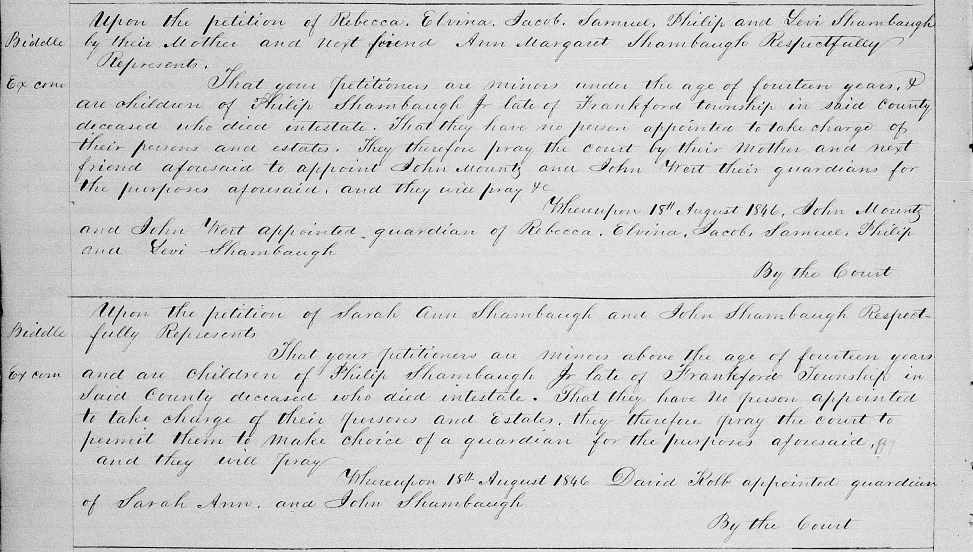 Upon the petition of Rebecca. Elvina. Jacob. Samuel. Philip and Levi Shambaugh
Biddle by their Mother and next friend Ann Margaret Shambaugh Respectfully
Represents.
Ex com That your petitioners are minors under the age of fourteen years, &
are children of Philip Shambaugh Jr late of Frankford township in said County
deceased who died intestate. That they have no person appointed to take charge of
their persons and estates. They therefore pray the court by their Mother and next
friend aforesaid to appoint John Mountz and John Wert their guardians for
the purposes aforesaid. and they will pray &c
Whereupon 18th August 1846. John Mountz
and John Wert appointed guardian of Rebecca. Elvina. Jacob. Samuel. Philip
and Levi Shambaugh
By the Court
Upon the petition of Sarah Ann Shambaugh and John Shambaugh Respect-
Biddle fully Represents
That your petitioners are minors above the age of fourteen years
Ex com and are children of Philip Shambaugh Jr late of Frankford Township in
Said County deceased who died intestate. That they have no person appointed
to take charge of their persons and Estates. they therefore pray the court to
permit them to make choice of a guardian for the purposes aforesaid.
and they will pray
Whereupon 18th August 1846 David Kolb appointed guardian
of Sarah Ann. and John Shambaugh
By the Court